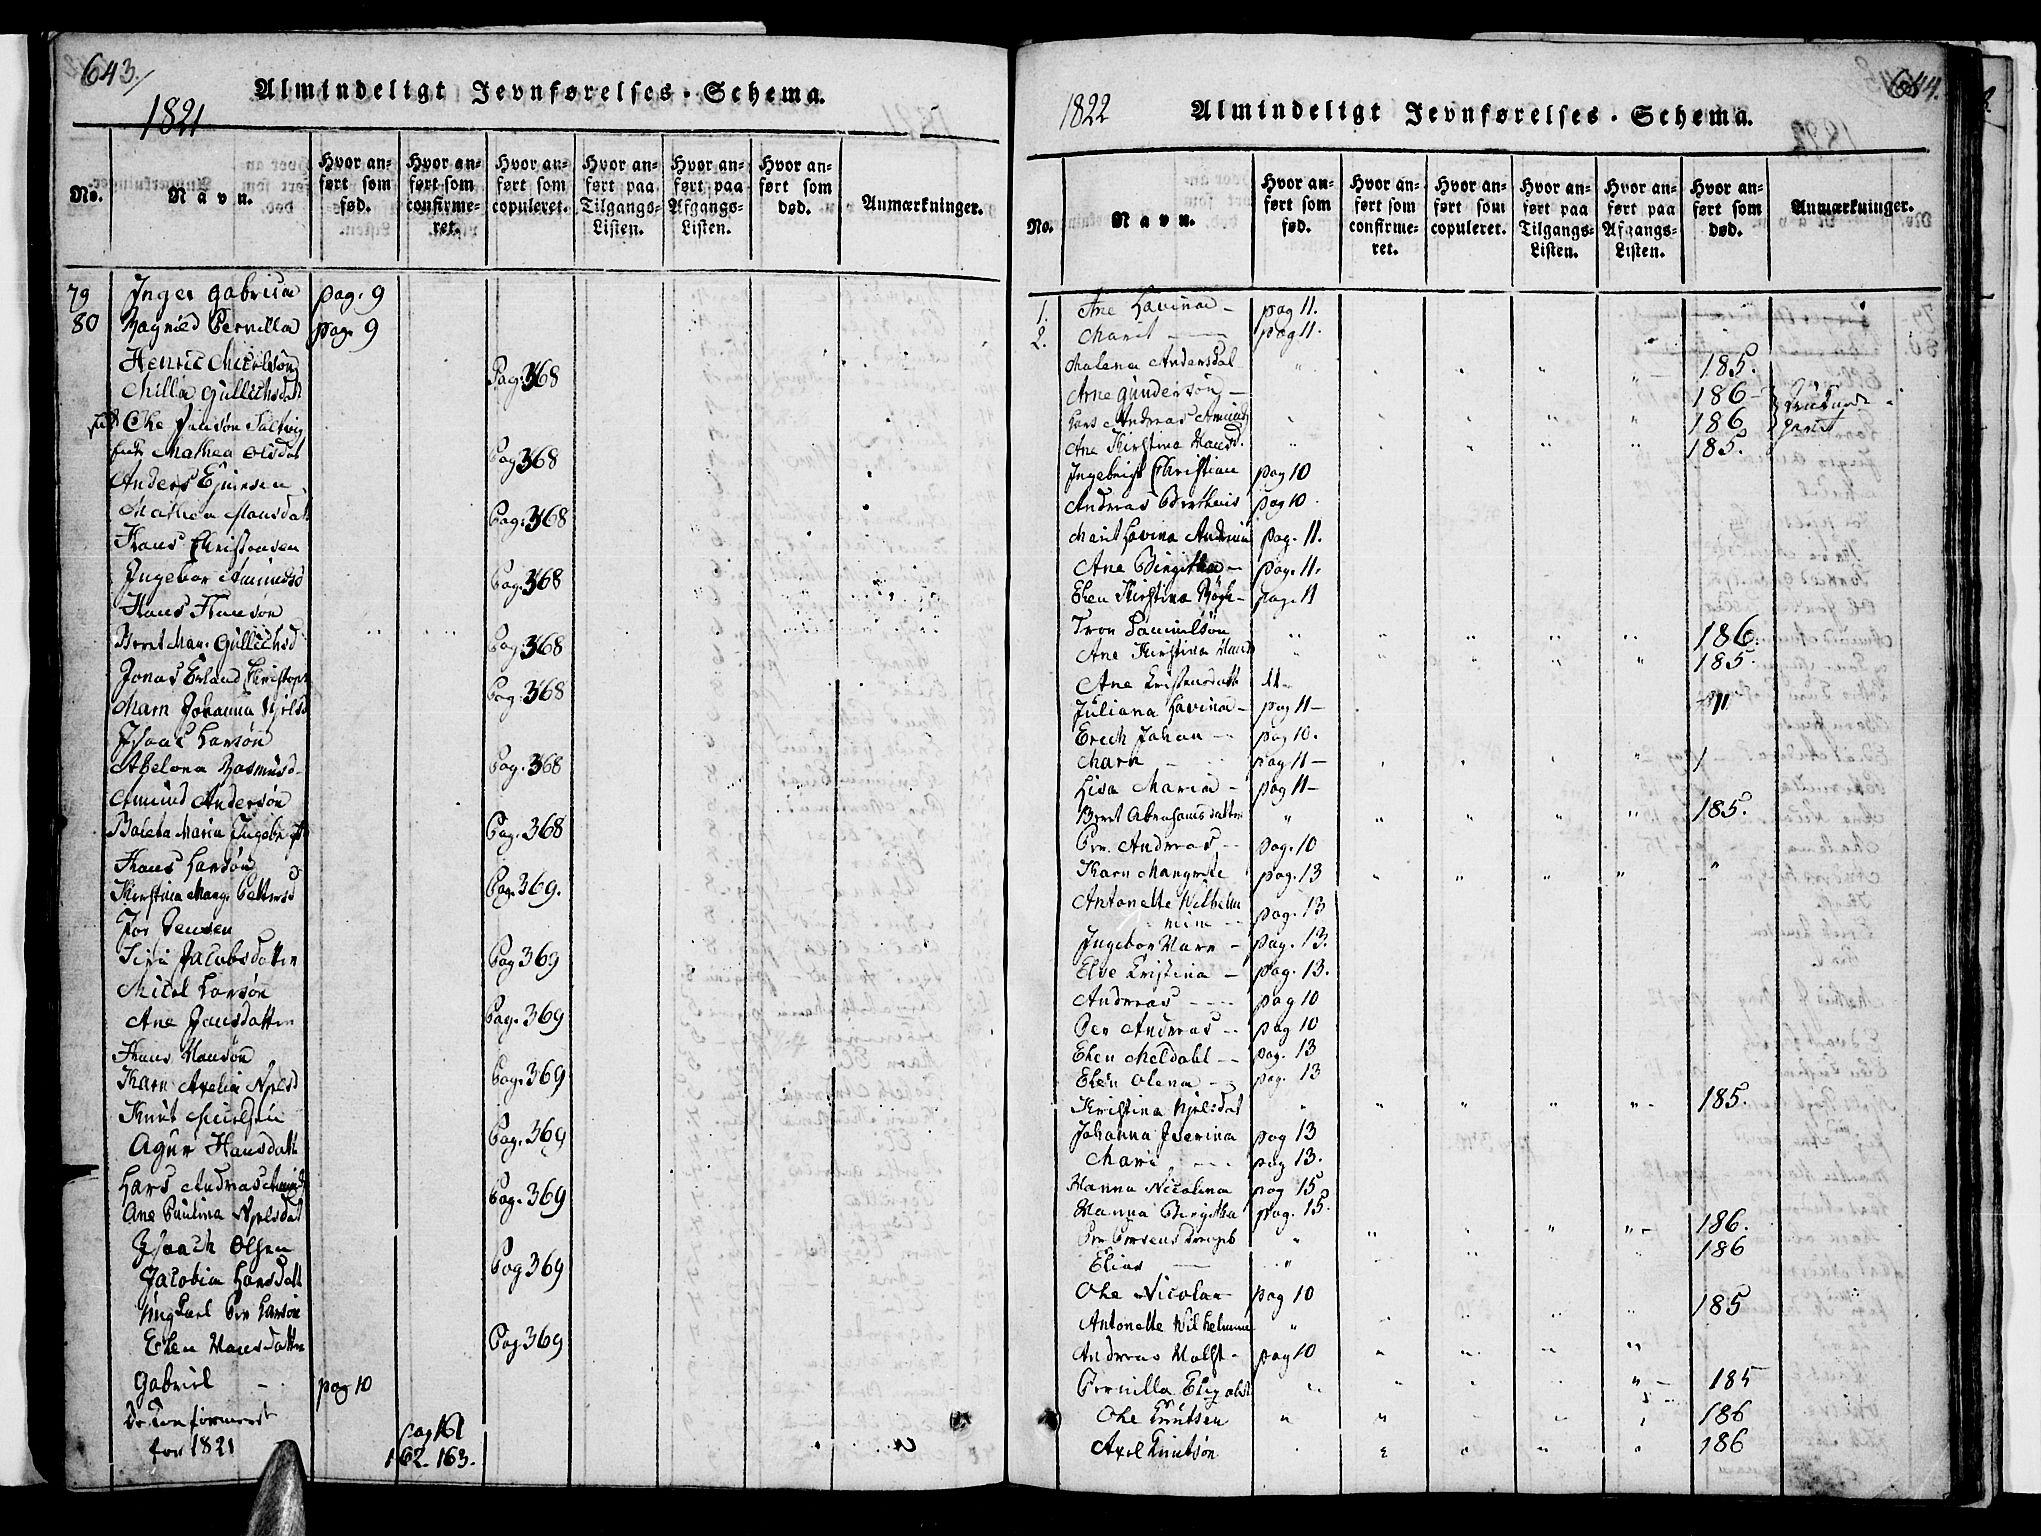 643.
1821
Almindeligt Jevnførelses-Schema.
No.
Navn.
Hvor anført som fød.
Hvor anført som confirmeret.
Hvor anført som copuleret.
Hvor anført paa Tilgangs-Listen.
Hvor anført paa Afgangs-Listen.
Hvor anført som død.
Anmærkninger.
79 Inger gabriela pag. 9
80 Ragnild Pernilla pag. 9
Henric
Milla Gullichsdatt Pag: 368
Ole Jensøn
Mathea Olsdat Pag 368
Anders
Mathea Hansdatt Pag: 368
Hans Christensen
Ingebor Amundsd Pag: 368
Hans Hansøn
Beret Mar. Gullichsd Pag: 368
Jonas Erland Christoph
Marn Johanna Njelsd Pag: 368
Isaac Larsøn
Abelona Rasmusd Pag. 368
Amund Andersøn
Maria Ingebr Pag. 368
Hans Larsøn
Kirstina Marg. Pettersd Pag. 369.
Jon Jensen
Siri Jacobsdatter Pag 369
Micel Larsøn
Ane Jansdatter Pag. 369
Hans Hansøn
Karn Axelia Njelsd Pag. 369
Knut
Agur Hansdatt Pag. 369
Lars Andreas Amund
Ane Paulina Njelsdat Pag. 369
Isaach Olsen
Jacobia Larsdatt Pag 369
Ungkarl Per Larsøn
Elen Hansdatter Pag. 369
Gabriel pag 10
De Confirmerede
for 1821 pag 161
162. 163.
644.
1822
Almindeligt Jevnførelses-Schema.
No.
Navn.
Hvor anført som fød.
Hvor anført som confirmeret.
Hvor anført som copuleret.
Hvor anført paa Tilgangs-Listen.
Hvor anført paa Afgangs-Listen.
Hvor anført som død.
Anmærkninger.
1. Ane Lavina pag 11.
2. Marit pag 11.
Malena Andersdat 185.
Arne Gundersøn 186
Lars Andreas Amund 186
Ane Kirstina Hansd. 185.
Ingebrigt Christian pag 10
Andreas Bertheus pag 10
Marit Lovina Andrina pag. 11.
Ane Birgitha pag. 11.
Elen Kirstina pag. 11
Tron Danielsøn 186
Ane Kirstina Hansd 185.
Ane Cristensdatt 11
Juliana Lavina pag 11
Erech Johan pag 10.
Marn pag 11
Lisa Maria pag 11
Beret Abrahamsdatter 185.
Per Andreas pag. 10
Karn Margrete pag. 13
Antonette Wilhelmine pag. 13
Ingebor Marn pag. 13.
Elve Cristina pag. 13.
Andreas pag 10
Per Andreas pag 10
Elen Meldahl pag. 13
Elen Olena pag. 13
Kristina Njelsdat 185.
Johanna Severina pag 13
Mari pag 13.
Hanna Nicolina pag 15
Hanna Birgitha pag. 15.
Per Persens 186.
Elias 186
Ole Nicolai pag 10
Antonette Wilhelmine 185
Andreas Holst pag 10
Pernilla 185
Ole Knutsen 186
Axel Knutsøn 186